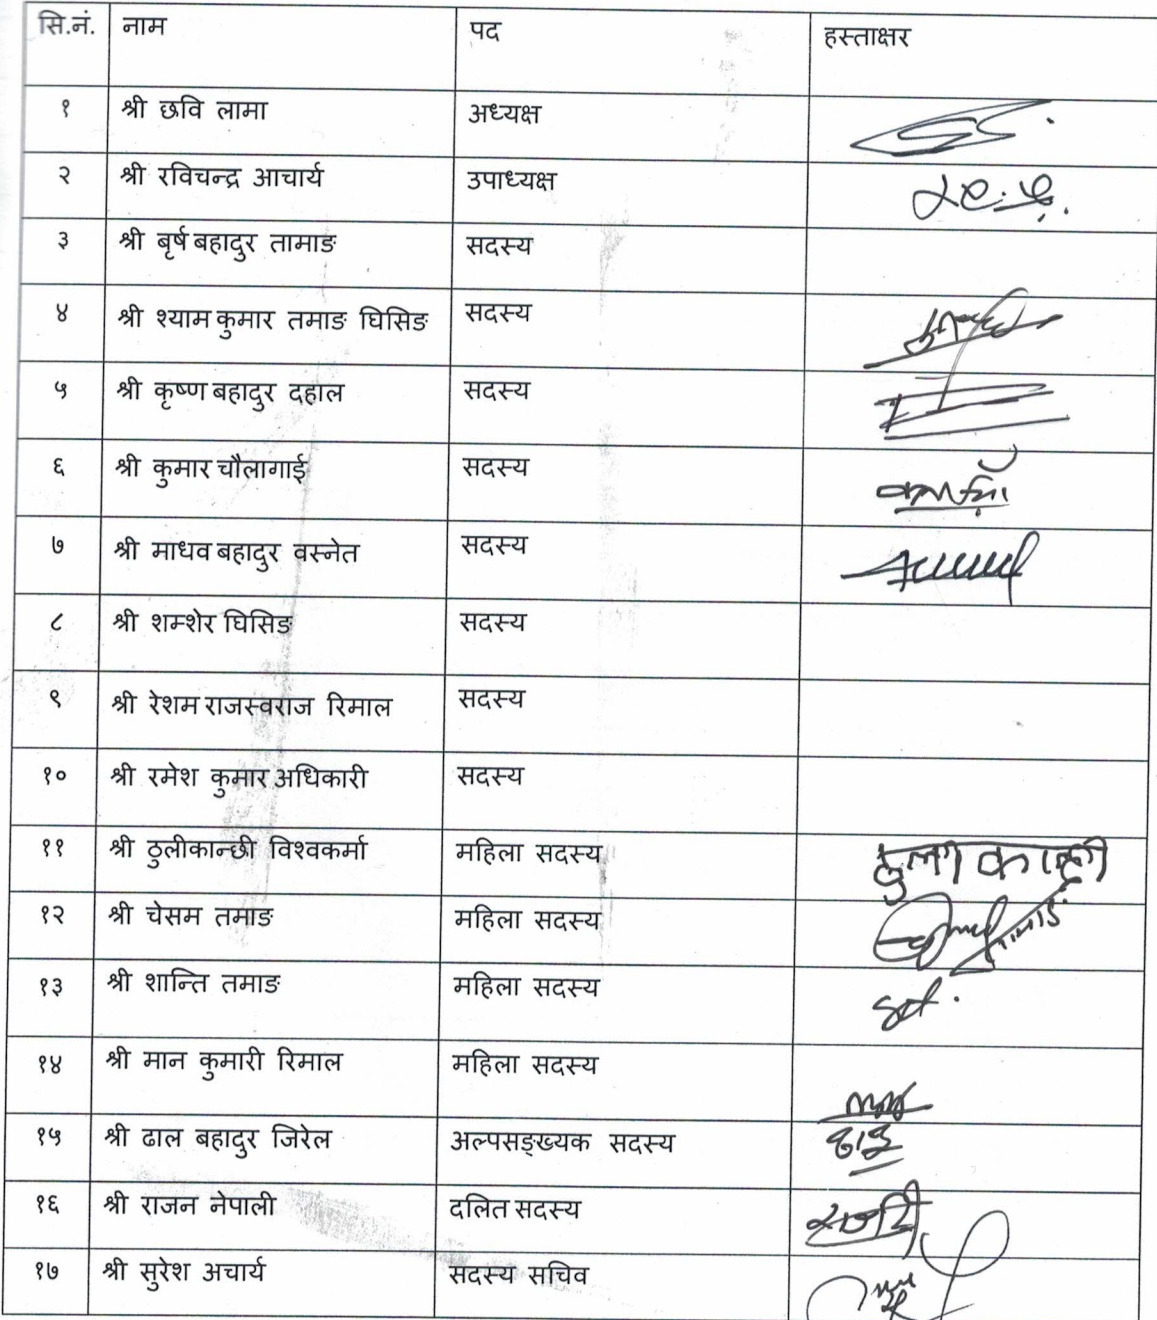 सि.नं. नाम पद हस्ताक्षर
१ श्री छवि लामा अध्यक्ष
२ श्री रविचन्द्र आचार्य उपाध्यक्ष
३ श्री बृर्ष बहादुर तामाङ सदस्य
४ श्री श्याम कुमार तमाङ घिसिङ सदस्य
५ श्री कृष्ण बहादुर दहाल सदस्य
६ श्री कुमार चौलागाई सदस्य
७ श्री माधव बहादुर वस्नेत सदस्य
८ श्री शम्शेर घिसिङ सदस्य
९ श्री रेशम राजस्वराज रिमाल सदस्य
१० श्री रमेश कुमार अधिकारी सदस्य
११ श्री ठुलीकान्छी विश्वकर्मा महिला सदस्य
१२ श्री चेसम तमाङ महिला सदस्य
१३ श्री शान्ति तमाङ महिला सदस्य
१४ श्री मान कुमारी रिमाल महिला सदस्य
१५ श्री ढाल बहादुर जिरेल अल्पसङ्ख्यक सदस्य
१६ श्री राजन नेपाली दलित सदस्य
१७ श्री सुरेश अचार्य सदस्य सचिव